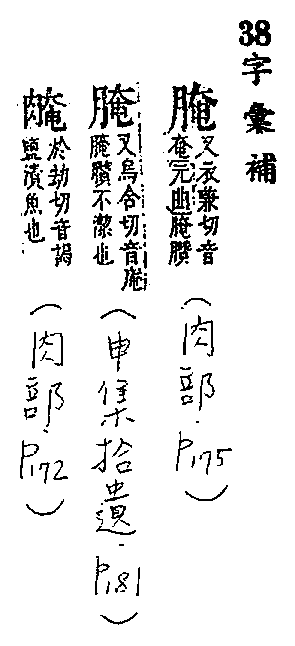 38字彙補
腌 又衣兼切音
奄元曲腌臢
(肉部.P.175)
腌 又烏合切音庵
腌臢不潔也
(申集拾遺.P.181)
䐶 於劫切音謁
鹽漬魚也
(肉部.P.172)